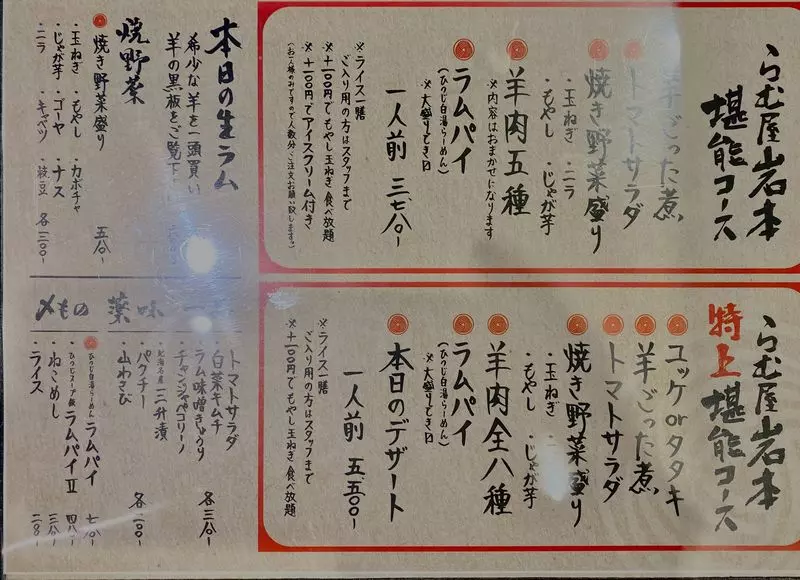 らむ屋岩本
堪能コース
羊ごった煮
トマトサラダ
焼き野菜盛り
・玉ねぎ ・ニラ
・もやし ・じゃが芋
羊肉五種
※内容はおまかせになります
ラムパイ
(ひつじ白湯らーめん)
※大盛りでき〼
一人前 三、七八〇-
※ライス一膳
ご入り用の方はスタッフまで
※+一〇〇円でもやし玉ねぎ食べ放題
※+一〇〇円でアイスクリーム付き
(お一人様のみですので人数分ご注文お願い致します。)
らむ屋岩本
特上堪能コース
ユッケorタタキ
羊ごった煮
トマトサラダ
焼き野菜盛り
・玉ねぎ ・ニラ
・もやし ・じゃが芋
羊肉全八種
ラムパイ
(ひつじ白湯らーめん)
※大盛りでき〼
本日のデザート
一人前 五、五〇〇-
※ライス一膳
ご入り用の方はスタッフまで
※+一〇〇円でもやし玉ねぎ食べ放題
本日の生ラム
希少な羊を一頭買い
羊の黒板をご覧下
焼野菜
焼き野菜盛り 五八〇-
・玉ねぎ ・もやし ・カボチャ
・じゃが芋 ・ゴーヤ ・ナス
・ニラ ・キャベツ ・枝豆 各三〇〇-
一
・トマトサラダ
・白菜キムチ
・ラム味噌きゅうり
・チャンジャペコリーノ 各三八〇-
薬味
北海道名産 三升漬
・パクチー
・山わさび 各一〇〇-
〆もの
ひつじ白湯らーめん ラムパイ 七八〇-
・ひつじスープ飯 ラムパイⅡ 四八〇-
・ねこめし 三八〇-
・ライス 二八〇-